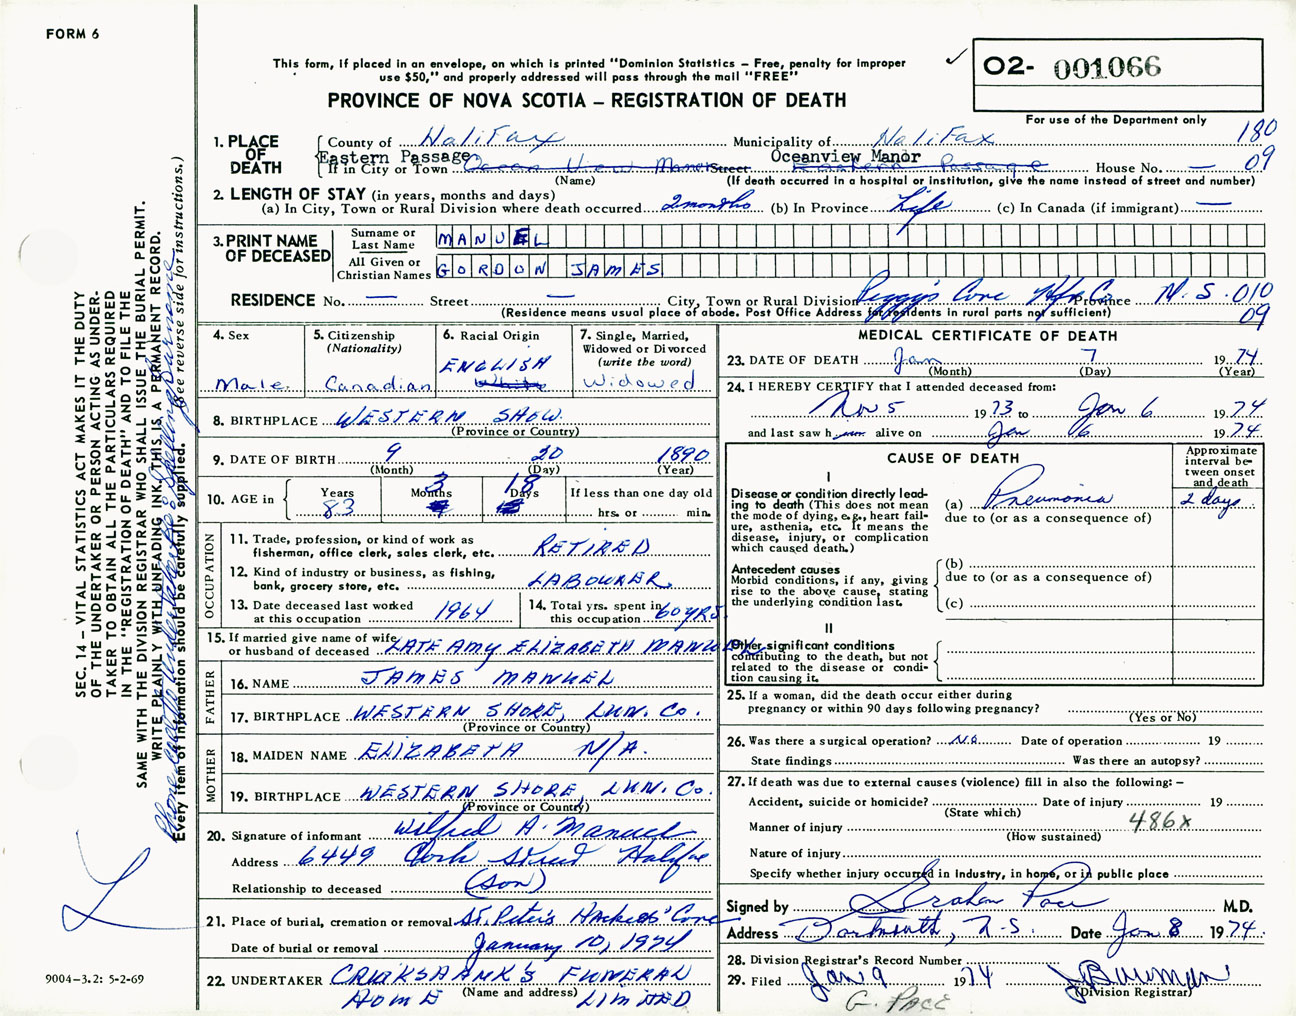 FORM 6
This form, if placed in an envelope, on which is printed "Dominion Statistics – Free, penalty for improper
use $50," and properly addressed will pass through the mail "FREE"
PROVINCE OF NOVA SCOTIA – REGISTRATION OF DEATH
✓ O2- 001066
For use of the Department only
180
09
SEC. 14 – VITAL STATISTICS ACT MAKES IT THE DUTY
OF THE UNDERTAKER OR PERSON ACTING AS UNDER-
TAKER TO OBTAIN ALL THE PARTICULARS REQUIRED
IN THE "REGISTRATION OF DEATH" AND TO FILE THE
SAME WITH THE DIVISION REGISTRAR WHO SHALL ISSUE THE BURIAL PERMIT.
WRITE PLAINLY WITH UNFADING INK. THIS IS A PERMANENT RECORD.
Every item of information should be carefully supplied. (See reverse side for instructions.)
1. PLACE OF DEATH
County of Halifax Municipality of Halifax
Eastern Passage Oceanview Manor
If in City or Town Ocean View Manor Street Eastern Passage House No. —
(Name) (If death occurred in a hospital or institution, give the name instead of street and number)
2. LENGTH OF STAY (in years, months and days)
(a) In City, Town or Rural Division where death occurred 2 months (b) In Province Life (c) In Canada (if immigrant) —
3. PRINT NAME OF DECEASED
Surname or Last Name MANUEL
All Given or Christian Names GORDON JAMES
RESIDENCE No. — Street — City, Town or Rural Division Peggy's Cove Hfx Co. Province N.S. 010
(Residence means usual place of abode. Post Office Address for residents in rural parts not sufficient) 09
4. Sex Male
5. Citizenship (Nationality) Canadian
6. Racial Origin ENGLISH White
7. Single, Married, Widowed or Divorced (write the word) Widowed
8. BIRTHPLACE WESTERN SHOW.
(Province or Country)
9. DATE OF BIRTH 9 20 1890
(Month) (Day) (Year)
10. AGE in Years 83 Months 3 Days 18 If less than one day old
hrs. or min.
OCCUPATION
11. Trade, profession, or kind of work as
fisherman, office clerk, sales clerk, etc. RETIRED
12. Kind of industry or business, as fishing,
bank, grocery store, etc. LABOURER
13. Date deceased last worked
at this occupation 1964
14. Total yrs. spent in
this occupation 60 YRS.
15. If married give name of wife
or husband of deceased LATE AMY ELIZABETH MANUEL
FATHER
16. NAME JAMES MANUEL
17. BIRTHPLACE WESTERN SHORE, LUN. CO.
(Province or Country)
MOTHER
18. MAIDEN NAME ELIZABETH N/A.
19. BIRTHPLACE WESTERN SHORE, LUN. CO.
(Province or Country)
20. Signature of informant Wilfred A. Manuel
Address 6449 Cork Street Halifax
Relationship to deceased (Son)
21. Place of burial, cremation or removal St. Peter's Hackett's Cove
Date of burial or removal January 10, 1974
22. UNDERTAKER CRUIKSHANK'S FUNERAL
(Name and address)
HOME LIMITED
MEDICAL CERTIFICATE OF DEATH
23. DATE OF DEATH Jan 7 1974
(Month) (Day) (Year)
24. I HEREBY CERTIFY that I attended deceased from:
Nov 5 1973 to Jan 6 1974
and last saw him alive on Jan 6 1974
CAUSE OF DEATH
Approximate interval between onset and death
I
Disease or condition directly lead-
ing to death (This does not
mean the mode of dying, e.g., heart fail-
ure, asthenia, etc. It means the
disease, injury, or complication
which caused death.)
(a) Pneumonia 2 days
due to (or as a consequence of)
Antecedent causes
Morbid conditions, if any, giving
rise to the above cause, stating
the underlying condition last.
(b)
due to (or as a consequence of)
(c)
II
Other significant conditions
contributing to the death, but not
related to the disease or condi-
tion causing it.
25. If a woman, did the death occur either during
pregnancy or within 90 days following pregnancy?
(Yes or No)
26. Was there a surgical operation? No Date of operation 19
State findings Was there an autopsy?
27. If death was due to external causes (violence) fill in also the following: –
Accident, suicide or homicide? Date of injury 19
(State which)
Manner of injury 486X
(How sustained)
Nature of injury
Specify whether injury occurred in industry, in home, or in public place
Signed by Graham Pace M.D.
Address Dartmouth, N.S. Date Jan 8 1974.
28. Division Registrar's Record Number
29. Filed Jan 9 1974 J Bauman
(Division Registrar)
G. PACE
9004–3.2: 5-2-69